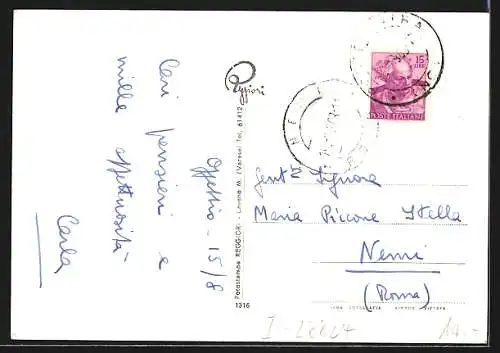 Cari pensieri e
mille affettuosità
Carla
15/8
Reggiori
Fotostampa REGGIORI - Laveno M. (Varese) Tel. 61412
1316
15
LIRE
POSTE ITALIANE
Gent. Signora
Maria Piccone Stella
Nemi
(Roma)
14.-